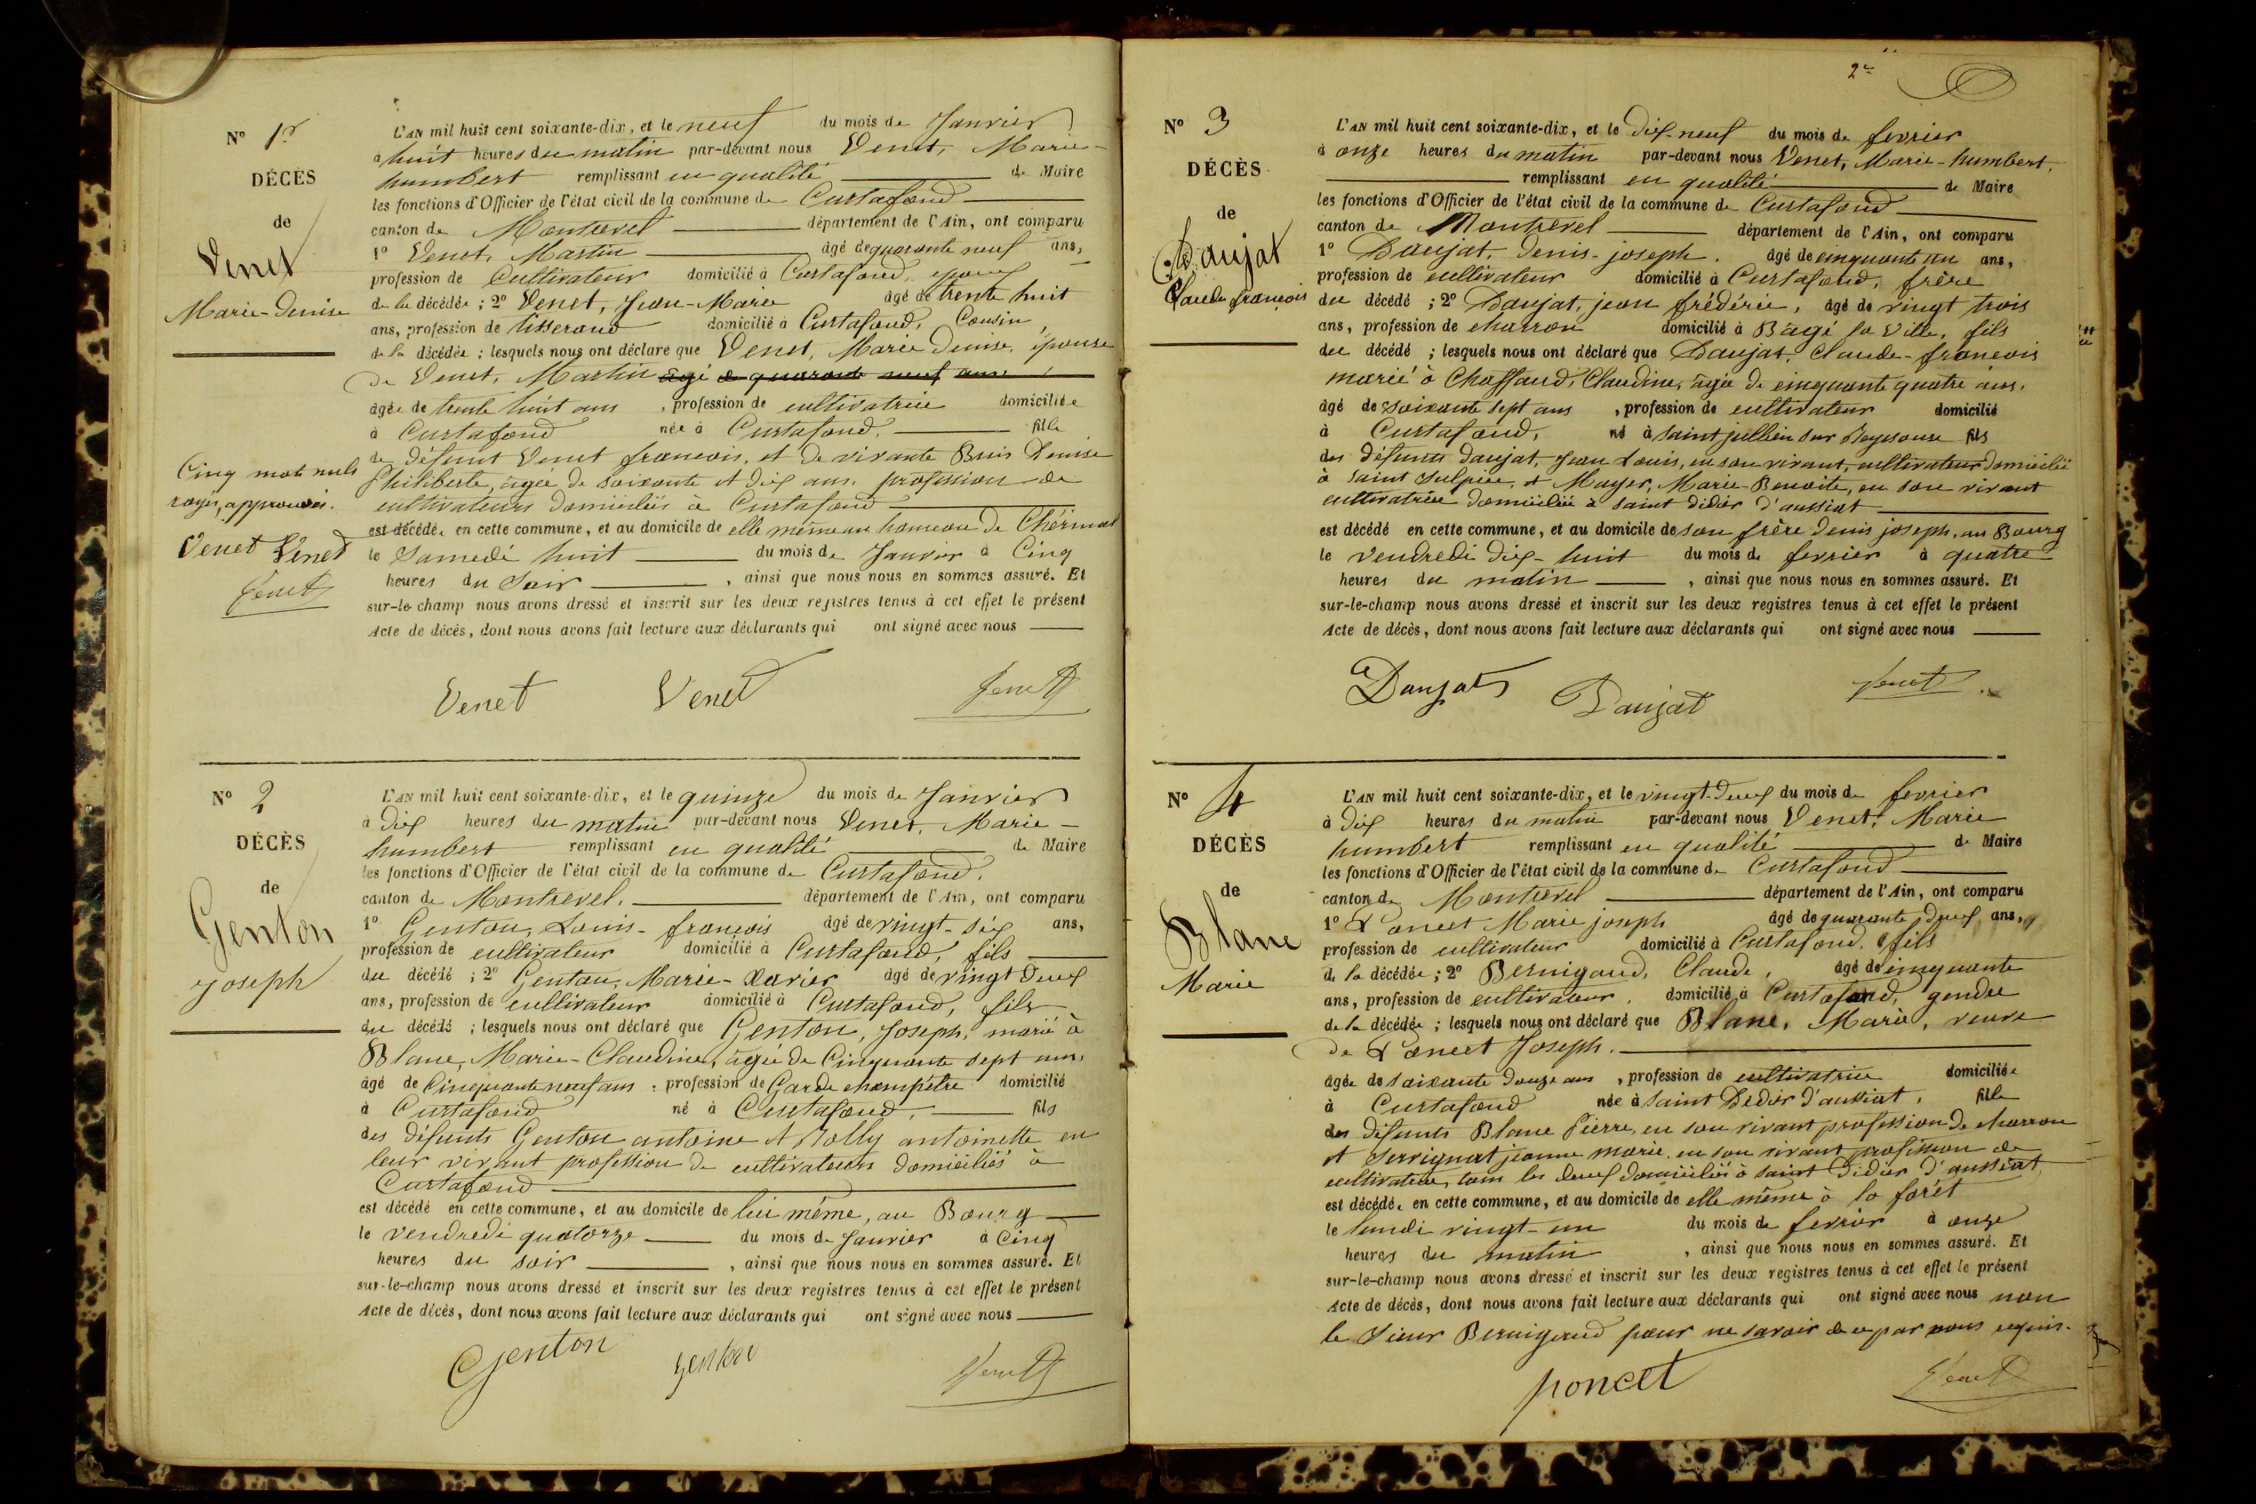 N° 1r
DÉCÈS
de
Venet
Marie-Denise
Cinq mots nuls
rayés, approuvés.
Venet Venet
Venet
L'AN mil huit cent soixante-dix, et le neuf du mois de Janvier
à huit heures du matin par-devant nous Venet, Marie-
humbert remplissant en qualité de Maire
les fonctions d'Officier de l'état civil de la commune de Curtafond
canton de Montrevel département de l'Ain, ont comparu
1° Venet, Martin âgé de quarante neuf ans,
profession de Cultivateur domicilié à Curtafond, époux
de la décédée ; 2° Venet, Jean-Marie âgé de trente huit
ans, profession de tisserand domicilié à Curtafond, Cousin,
de la décédée ; lesquels nous ont déclaré que Venet, Marie Denise, épouse
de Venet, Martin âgé de quarante neuf ans
âgée de trente huit ans, profession de cultivatrice domiciliée
à Curtafond née à Curtafond. fille
de défunt Venet francois, et de vivante Buis Denise
Philiberte, âgée de soixante et dix ans. profession de
cultivateurs domiciliés à Curtafond
est décédée, en cette commune, et au domicile de elle même au hameau de Chérinal
le Samedi huit du mois de Janvier à Cinq
heures du Soir, ainsi que nous nous en sommes assuré. Et
sur-le-champ nous avons dressé et inscrit sur les deux registres tenus à cet effet le présent
Acte de décès, dont nous avons fait lecture aux déclarants qui ont signé avec nous
Venet Venet Venet
N° 2
DÉCÈS
de
Genton
Joseph
L'AN mil huit cent soixante-dix, et le quinze du mois de Janvier
à dix heures du matin par-devant nous Venet, Marie-
humbert remplissant en qualité de Maire
les fonctions d'Officier de l'état civil de la commune de Curtafond.
canton de Montrevel. département de l'Ain, ont comparu
1° Genton, Louis-francois âgé de vingt-six ans,
profession de cultivateur domicilié à Curtafond, fils
du décédé ; 2° Genton, Marie-Xavier âgé de vingt deux
ans, profession de cultivateur domicilié à Curtafond, fils
du décédé ; lesquels nous ont déclaré que Genton, Joseph, marié à
Blanc, Marie-Claudine, âgée de Cinquante sept ans,
âgé de Cinquante neuf ans, profession de Garde champêtre domicilié
à Curtafond né à Curtafond, fils
des défunts Genton antoine et Nolly antoinette en
leur vivant profession de cultivateurs domiciliés à
Curtafond
est décédé en cette commune, et au domicile de lui même, au Bourg
le vendredi quatorze du mois de Janvier à Cinq
heures du soir, ainsi que nous nous en sommes assuré. Et
sur-le-champ nous avons dressé et inscrit sur les deux registres tenus à cet effet le présent
Acte de décès, dont nous avons fait lecture aux déclarants qui ont signé avec nous
Genton genton Venet
2e
N° 3
DÉCÈS
de
Daujat
Claude francois
L'AN mil huit cent soixante-dix, et le dix-neuf du mois de fevrier
à onze heures du matin par-devant nous Venet, Marie-humbert,
remplissant en qualité de Maire
les fonctions d'Officier de l'état civil de la commune de Curtafond
canton de Montrevel département de l'Ain, ont comparu
1° Daujat, Denis-joseph. âgé de cinquante un ans,
profession de cultivateur domicilié à Curtafond, frère
du décédé ; 2° Daujat, jean frédéric, âgé de vingt trois
ans, profession de charron domicilié à Bâgé la Ville, fils
du décédé ; lesquels nous ont déclaré que Daujat, Claude-francois
marié à Chaffaud, Claudine, âgée de cinquante quatre ans,
âgé de soixante sept ans, profession de cultivateur domicilié
à Curtafond, né à saint jullien sur Reyssouze fils
des défunts Daujat, Jean Louis, en son vivant, cultivateur domicilié
à Saint Sulpice, et Mayer, Marie-Benoite, en son vivant
cultivatrice domiciliée à saint didier d'aussiat
est décédé en cette commune, et au domicile de son frère denis joseph, au Bourg
le vendredi dix-huit du mois de fevrier à quatre
heures du matin, ainsi que nous nous en sommes assuré. Et
sur-le-champ nous avons dressé et inscrit sur les deux registres tenus à cet effet le présent
Acte de décès, dont nous avons fait lecture aux déclarants qui ont signé avec nous
Daujat Daujat Venet
N° 4
DÉCÈS
de
Blanc
Marie
L'AN mil huit cent soixante-dix, et le vingt-deux du mois de fevrier
à dix heures du matin par-devant nous Venet, Marie
humbert remplissant en qualité de Maire
les fonctions d'Officier de l'état civil de la commune de Curtafond
canton de Montrevel département de l'Ain, ont comparu
1° Poncet Marie joseph âgé de quarante deux ans,
profession de cultivateur domicilié à Curtafond. fils
de la décédée ; 2° Bernigaud, Claude, âgé de cinquante
ans, profession de cultivateur. domicilié à Curtafond, gendre
de la décédée ; lesquels nous ont déclaré que Blanc, Marie, veuve
de Poncet Joseph.
âgée de soixante douze ans, profession de cultivatrice domiciliée
à Curtafond née à saint Didier d'aussiat, fille
des défunts Blanc Pierre, en son vivant profession de charron
et Serrignat jeanne marie, en son vivant profession de
cultivatrice, tous les deux domiciliés à saint didier d'aussiat,
est décédée, en cette commune, et au domicile de elle même à la forêt
le lundi vingt-un du mois de fevrier à onze
heures du matin, ainsi que nous nous en sommes assuré. Et
sur-le-champ nous avons dressé et inscrit sur les deux registres tenus à cet effet le présent
Acte de décès, dont nous avons fait lecture aux déclarants qui ont signé avec nous non
le sieur Bernigaud pour ne savoir de ce par nous requis.
poncet Venet